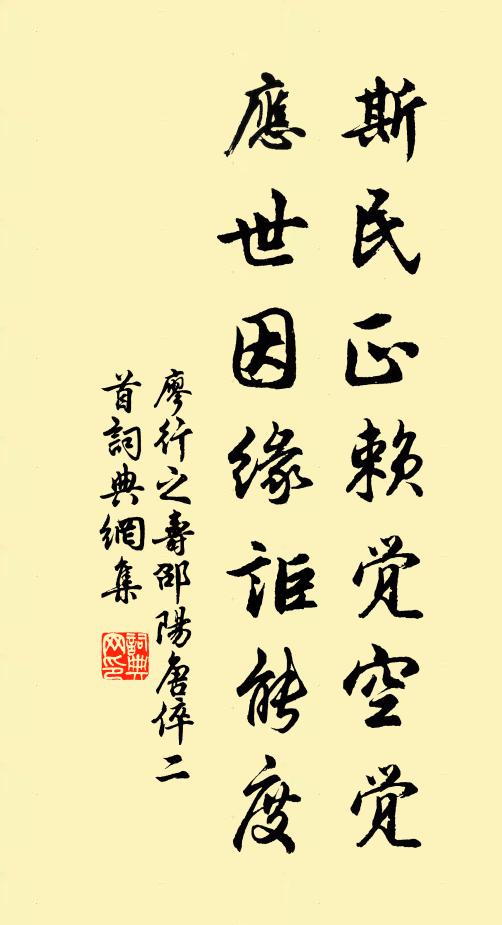 斯民正赖觉空觉
應世因緣詎能度
廖行之壽邵陽唐倅二
首詞典網集
詞典网印